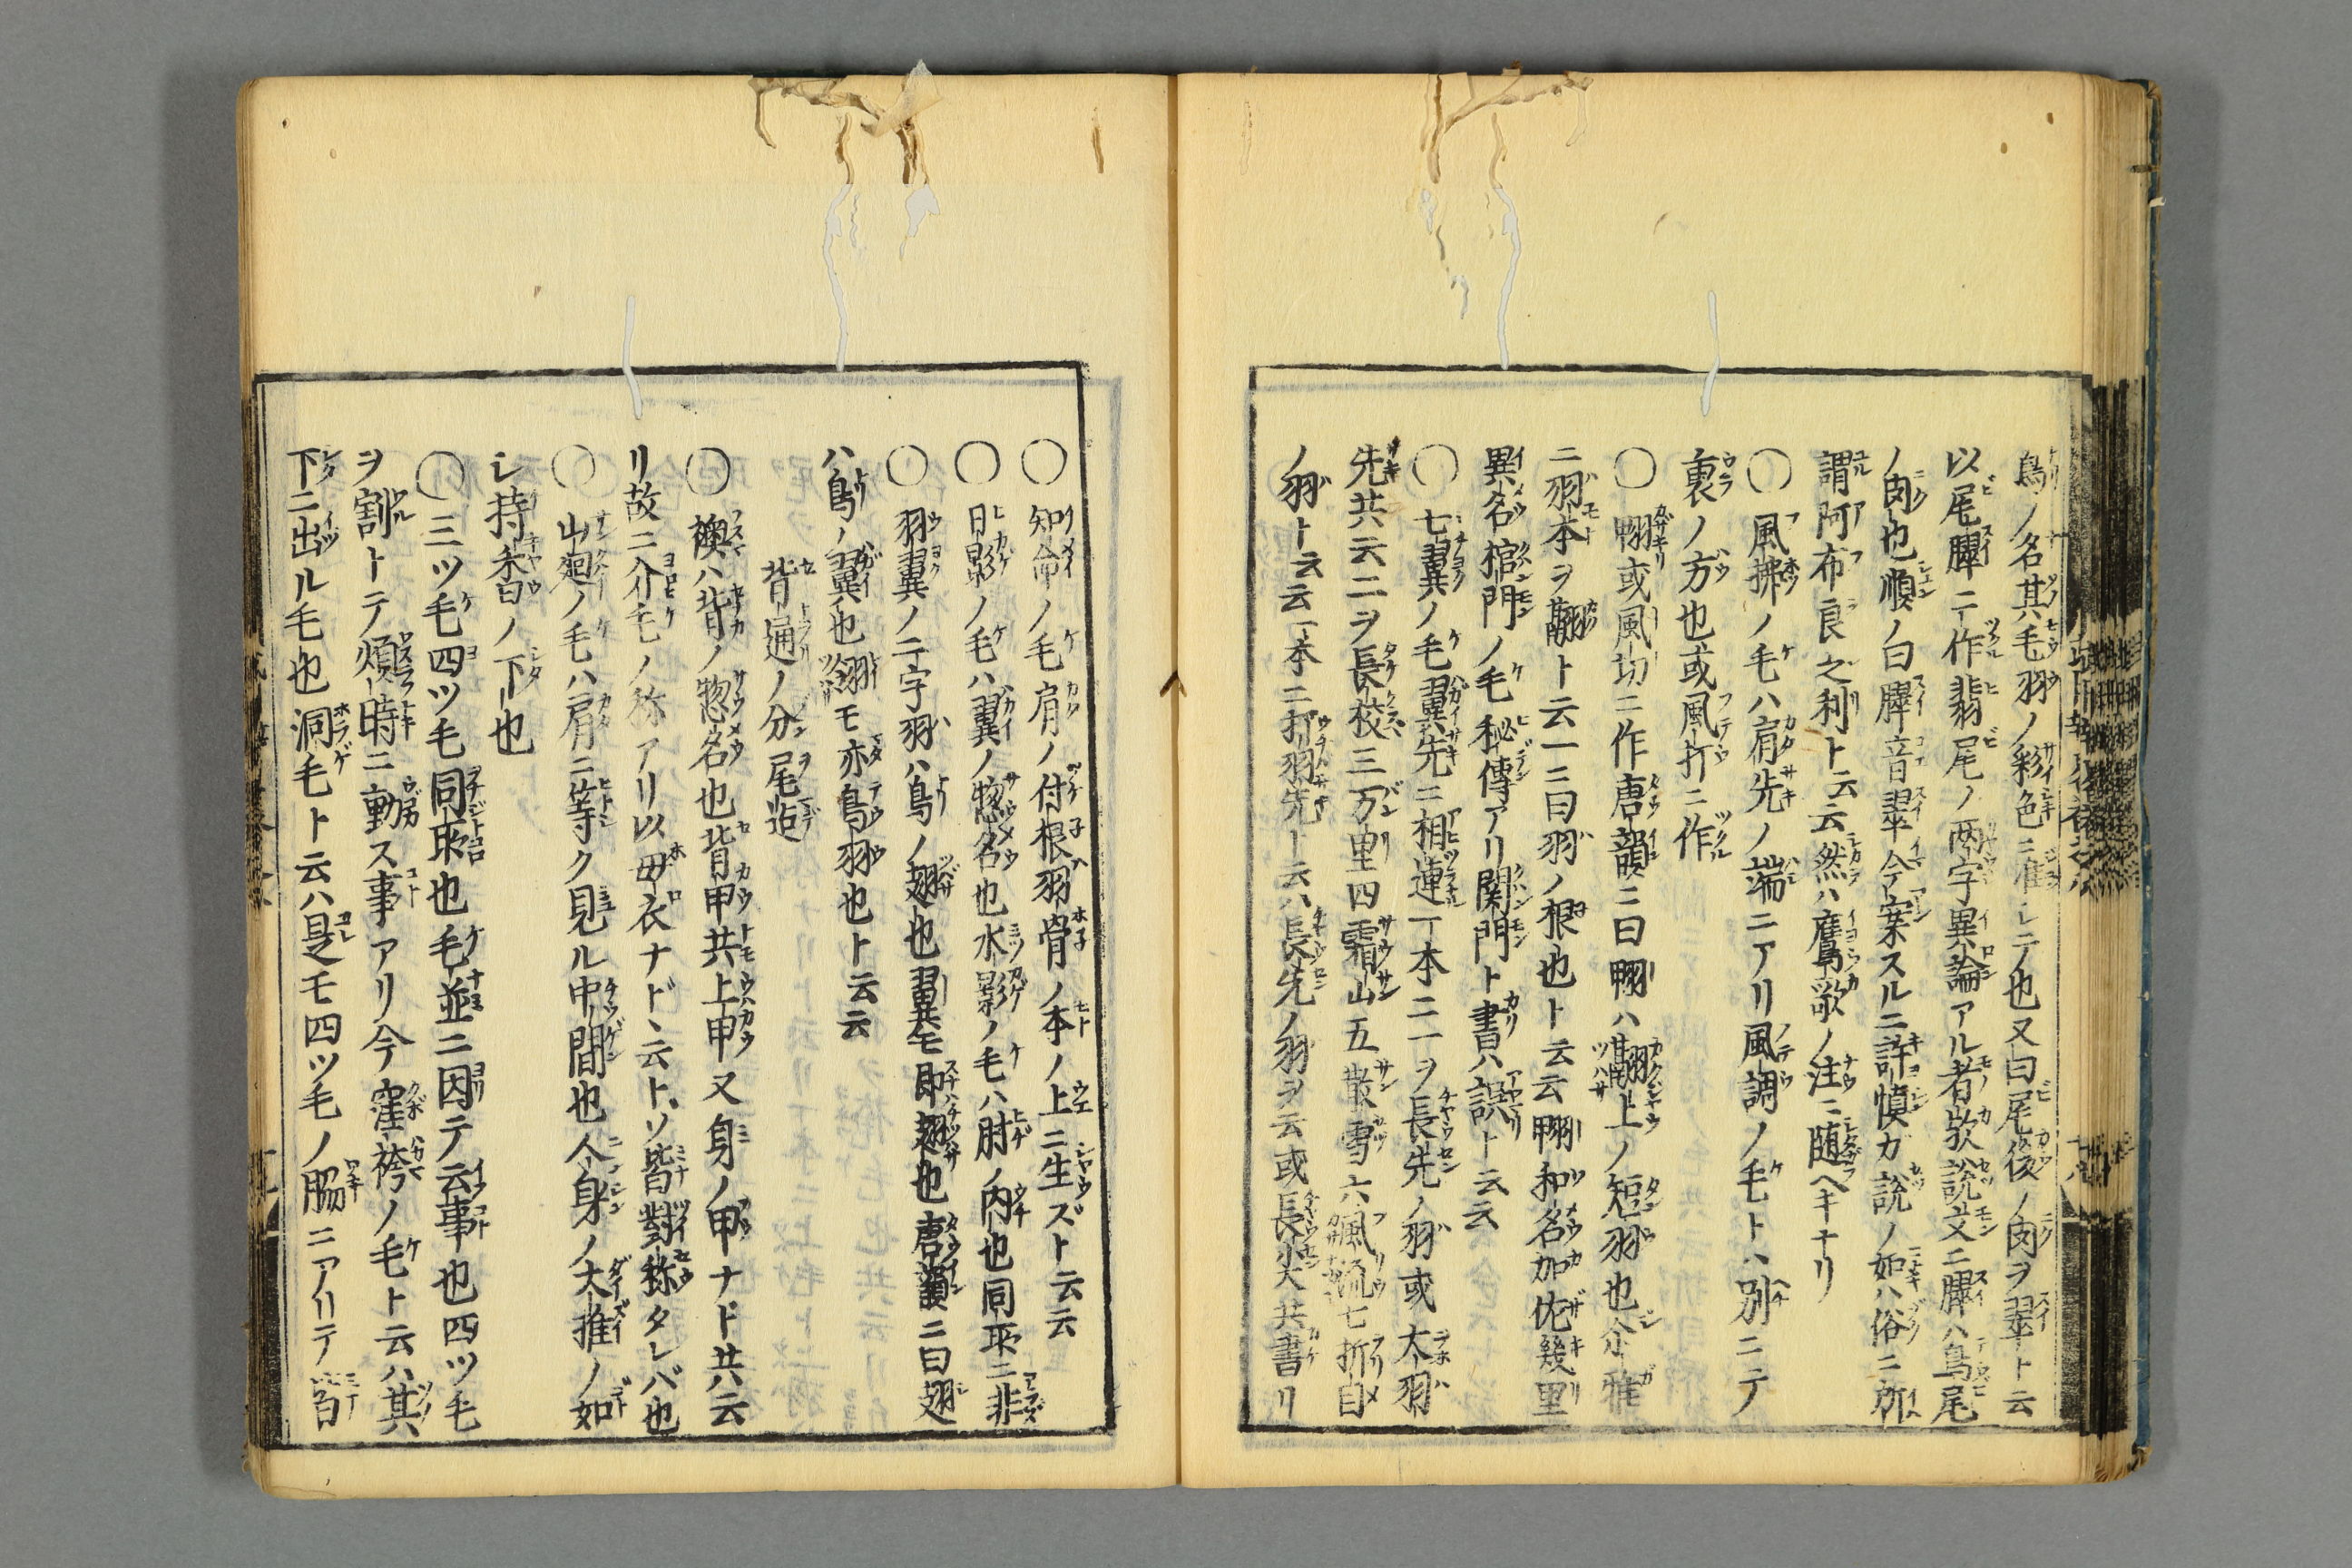 鳥ノ名其毛羽ノ彩色ニ准シテ也又曰尾後ノ肉ヲ翠ト云
以尾臎ニ作翡尾ノ両字異論アル者歟説文ニ臎ハ鳥尾
ノ肉也順ノ曰臎音翠今案スルニ許慎ガ説ノ如ハ俗ニ所
謂阿布良之利ト云云然ハ鷹歌ノ注ニ随ヘキナリ
○風拂ノ毛ハ肩先ノ端ニアリ風調ノ毛トハ別ニテ
裏ノ方也或風打ニ作
○翈或風切ニ作唐韻ニ曰翈ハ翮上ノ短羽也尒雅
ニ羽本ヲ翮ト云一ニ曰羽ノ根也ト云云翈和名加佐幾里
異名棺門ノ毛秘傳アリ関門ト書ハ誤ト云云
○七翼ノ毛翼先ニ相連一本ニ一ヲ長先ノ羽或大羽
先共云二ヲ長校三万里四霜山五散雪六風流七折目
ノ羽ト云云一本ニ打羽先ト云ハ長先ノ羽ヲ云或長尖共書リ
○知命ノ毛肩ノ付根羽骨ノ本ノ上ニ生ズト云云
○日影ノ毛ハ翼ノ惣名也水影ノ毛ハ肘ノ内也同所ニ非
○羽翼ノ二字羽ハ鳥ノ翅也翼モ即翅也唐韻ニ曰翅
ハ鳥ノ翼也翎モ亦鳥羽也ト云云
背通ノ分尾迄
○襖ハ背ノ惣名也背甲共上甲又身ノ甲ナド共云
リ故ニ介毛ノ称アリ以毋衣ナド云ト、ソ皆對称タレバ也
○山廻ノ毛ハ肩ニ等ク見ル中間也人身ノ大推ノ如
シ持香ノ下也
○三ツ毛四ツ毛同所也毛並ニ因テ云事也四ツ毛
ヲ割トテ煩時ニ動ス事アリ今窪袴ノ毛ト云ハ其
下ニ出ル毛也洞毛ト云ハ是モ四ツ毛ノ脇ニアリテ皆